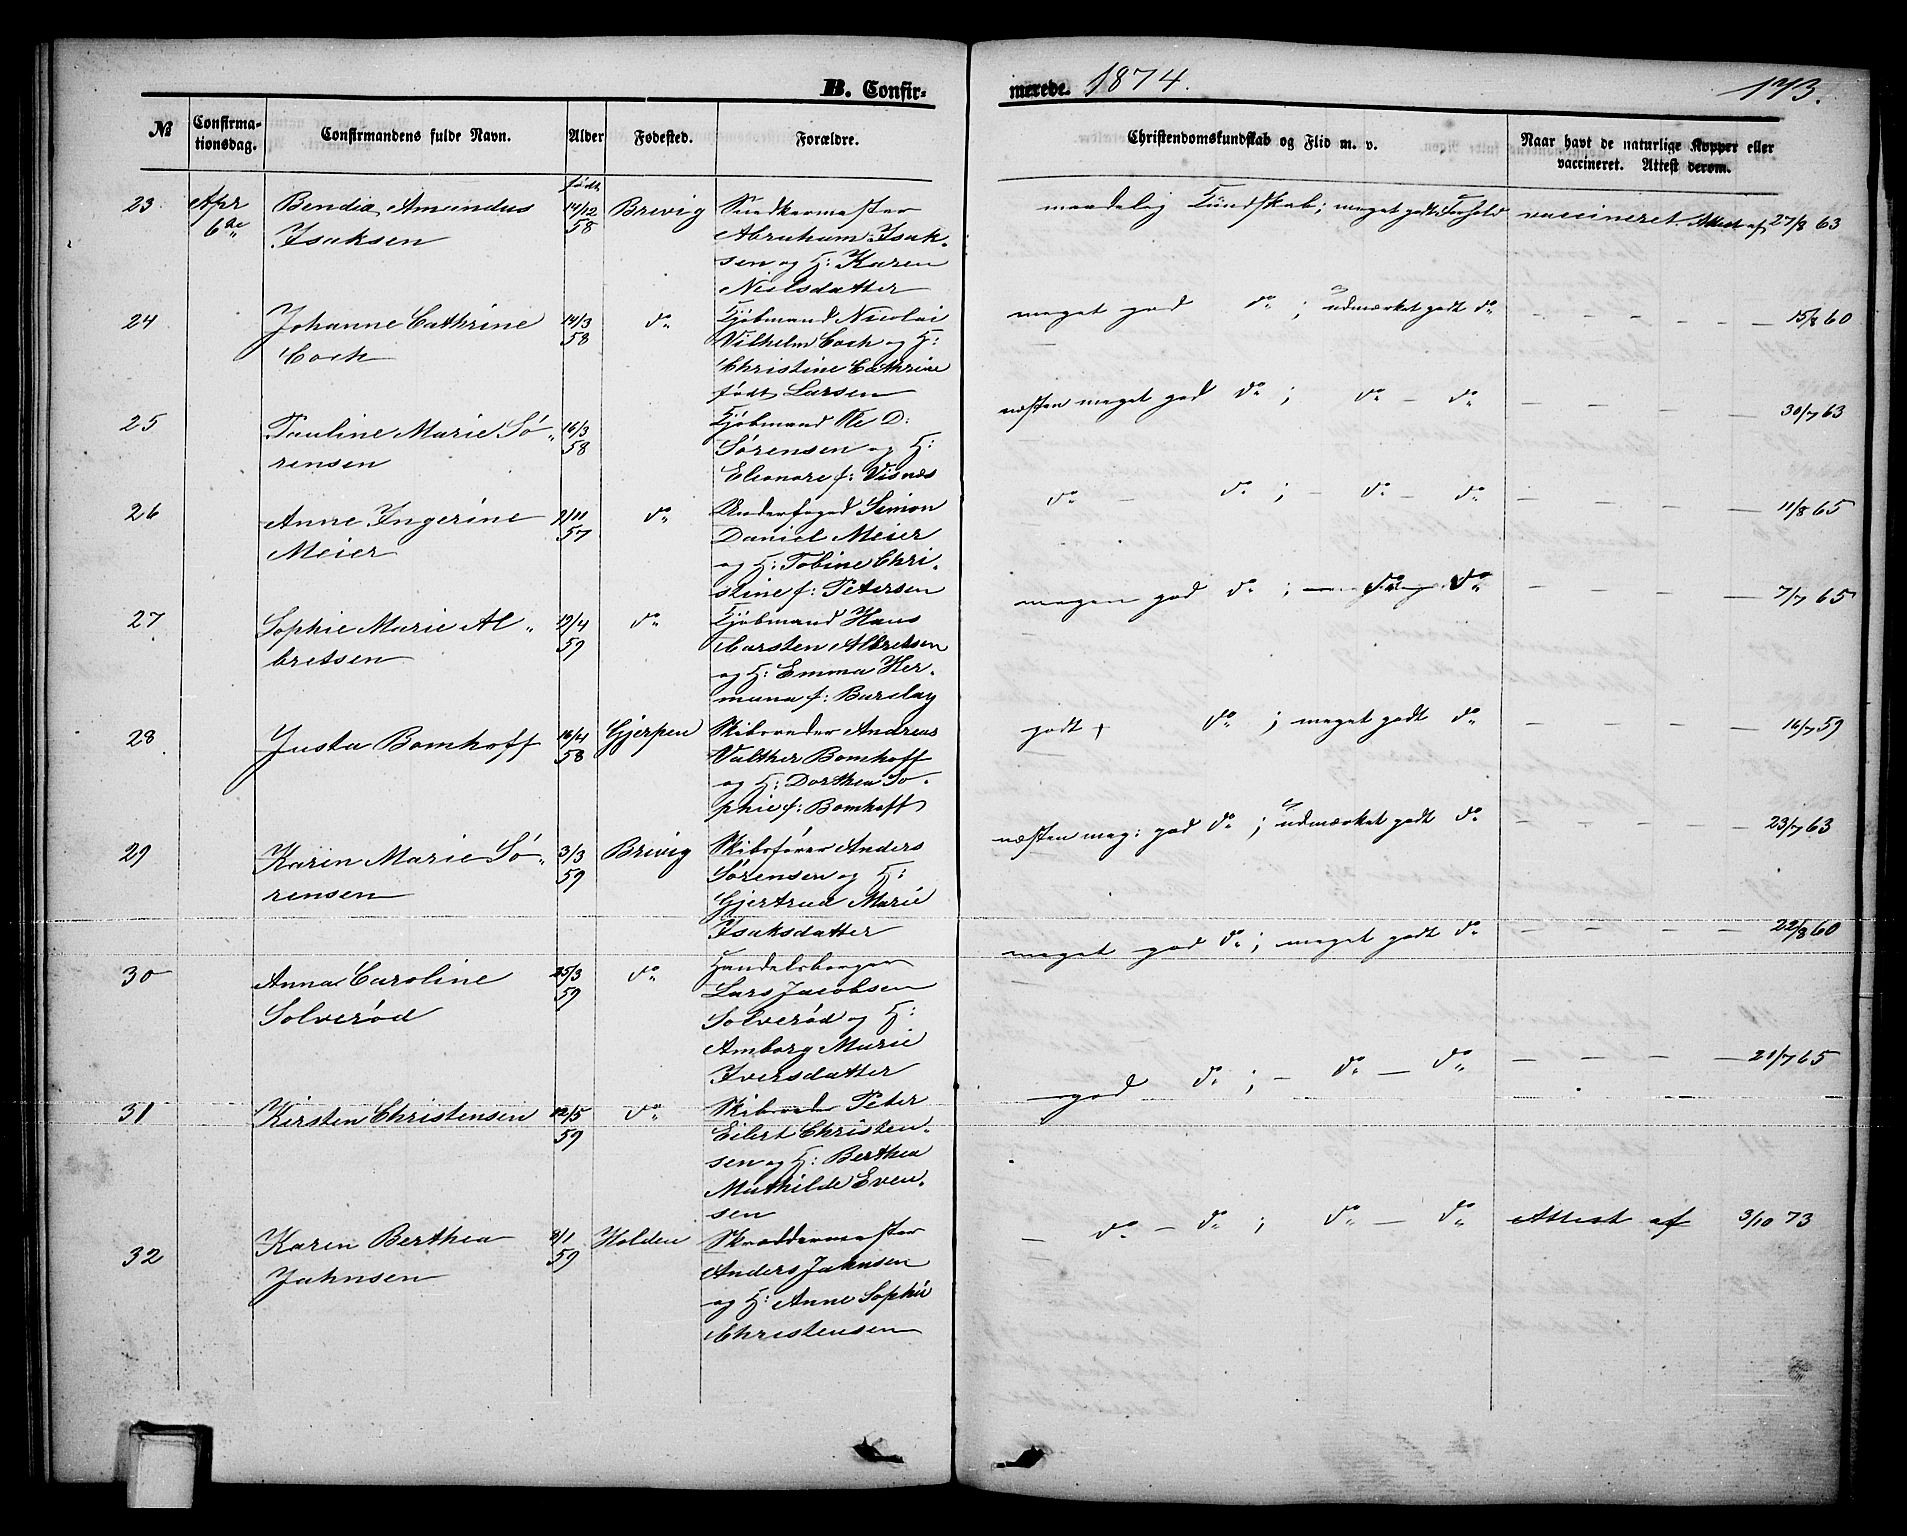 B. Confir-
merede. 1874.
173.
№
Confirma-
tionsdag.
Confirmandens fulde Navn.
Alder
Fødested.
Forældre.
Christendomskundskab og Flid m. v.
Naar havt de naturlige Kopper eller
vaccineret. Attest derom.
født
23 Apr Bendix Amandus 14/12 Brevig Snedkermester
6te Isaksen 58 Abraham Isak-
sen og H: Karen
Nielsdatter
maadelig Kundskab; meget godt Forhold vaccineret. Attest af 27/8 63
24 Johanne Cathrine 14/3 do Kjøbmand Nicolai
Coch 58 Vilhelm Coch og H:
Christine Cathrine
født Larsen
meget god do ; udmærket godt do — — — — 15/8 60
25 Pauline Marie Sø- 16/3 Kjøbmand Ole D:
rensen 58 Sørensen og H:
Eleonore f: Visnæs
næsten meget god do ; do — do — — — — 30/7 63
26 Anne Ingerine 9/11 do Underfoged Simon
Meier 57 Daniel Meier
og H: Tobine Chri-
stine f: Petersen
do — do ; — do — do — — — — 11/8 65
27 Sophie Marie Al- 19/4 do Kjøbmand Hans
bretsen 59 Carsten Albretsen
og H: Emma Her-
mana f: Barclay
megen god do ; do do — — — — 7/7 65
28 Justa Bomhoff 16/4 Gjerpen Skibsreder Andreas
58 Valther Bomhoff
og H: Dorthea So-
phie f: Bomhoff
godt do ; meget godt do — — — — 16/7 59
29 Karen Marie Sø- 3/3 Brevig Skibsfører Anders
rensen 59 Sørensen og H:
Gjertrud Marie
Isaksdatter
næsten meg: god do ; udmærket godt do — — — — 23/7 63
30 Anna Caroline 25/3 do Handelsborger
Solverød 59 Lars Jacobsen
Solverød og H:
Amborg Marie
Iversdatter
meget god do ; meget godt do — — — — 22/8 60
31 Kirsten Christensen 12/5 do Skibsreder Peter
59 Eilert Christen-
sen og H: Berthea
Mathilde Even-
sen
god do ; — do — do — — — — 21/7 65
32 Karen Berthea 9/1 Holden Skræddermester
Jahnsen 59 Anders Jahnsen
og H: Anne Sophie
Christensen
— do — do ; do — do Attest af 3/10 73